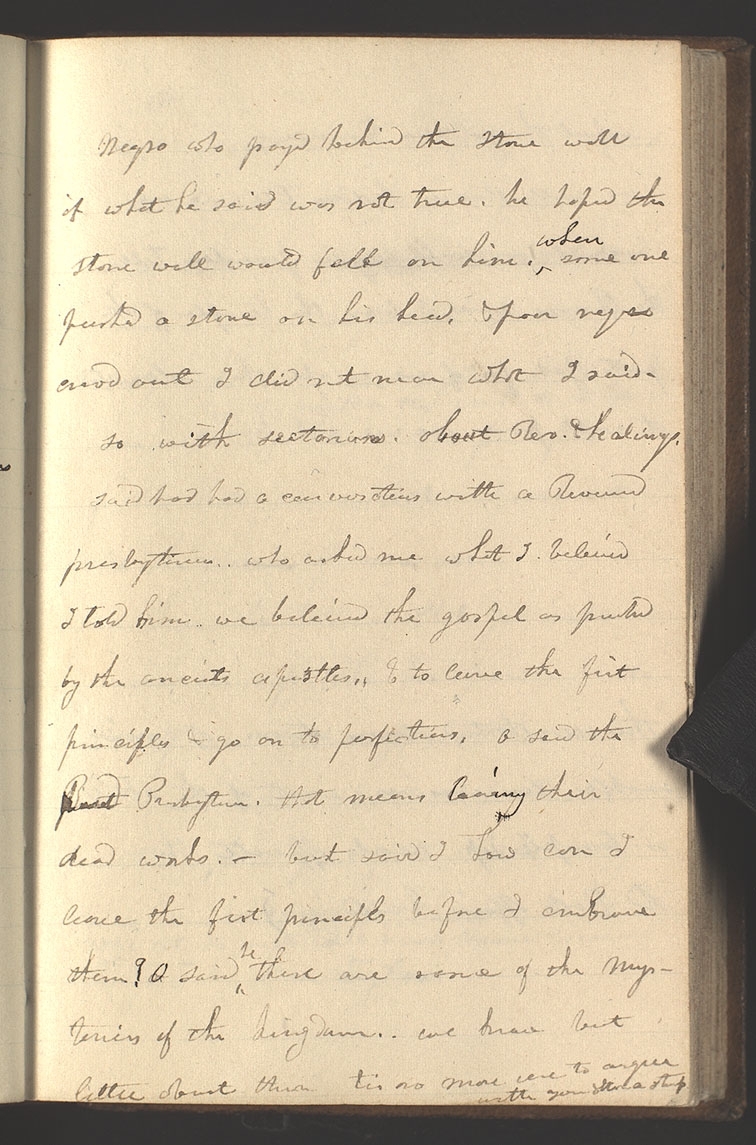 Negro who prayd behind the stone wall
if what he said was not true. he hoped the
stone wall would fall on him. when some one
pushd a stone on his head, & poor negro
cried out I did not mean what I said-
so with sectarians. about Rev. & healings.
said had had a conversations with a Revernd
presbyterian.. who asked me what I beleivd
I told him we beleivd the gospel as preachd
by the ancients apostles,, & to leave the first
principles & go on to perfections, O said the
Presbyterian. that means leaving their
dead works. - but said I how can I
leave the first principles before I embrace
them? O said he there are some of the Mys-
teries of the kingdom.. we know but
little about them tis no more use to argue
with you